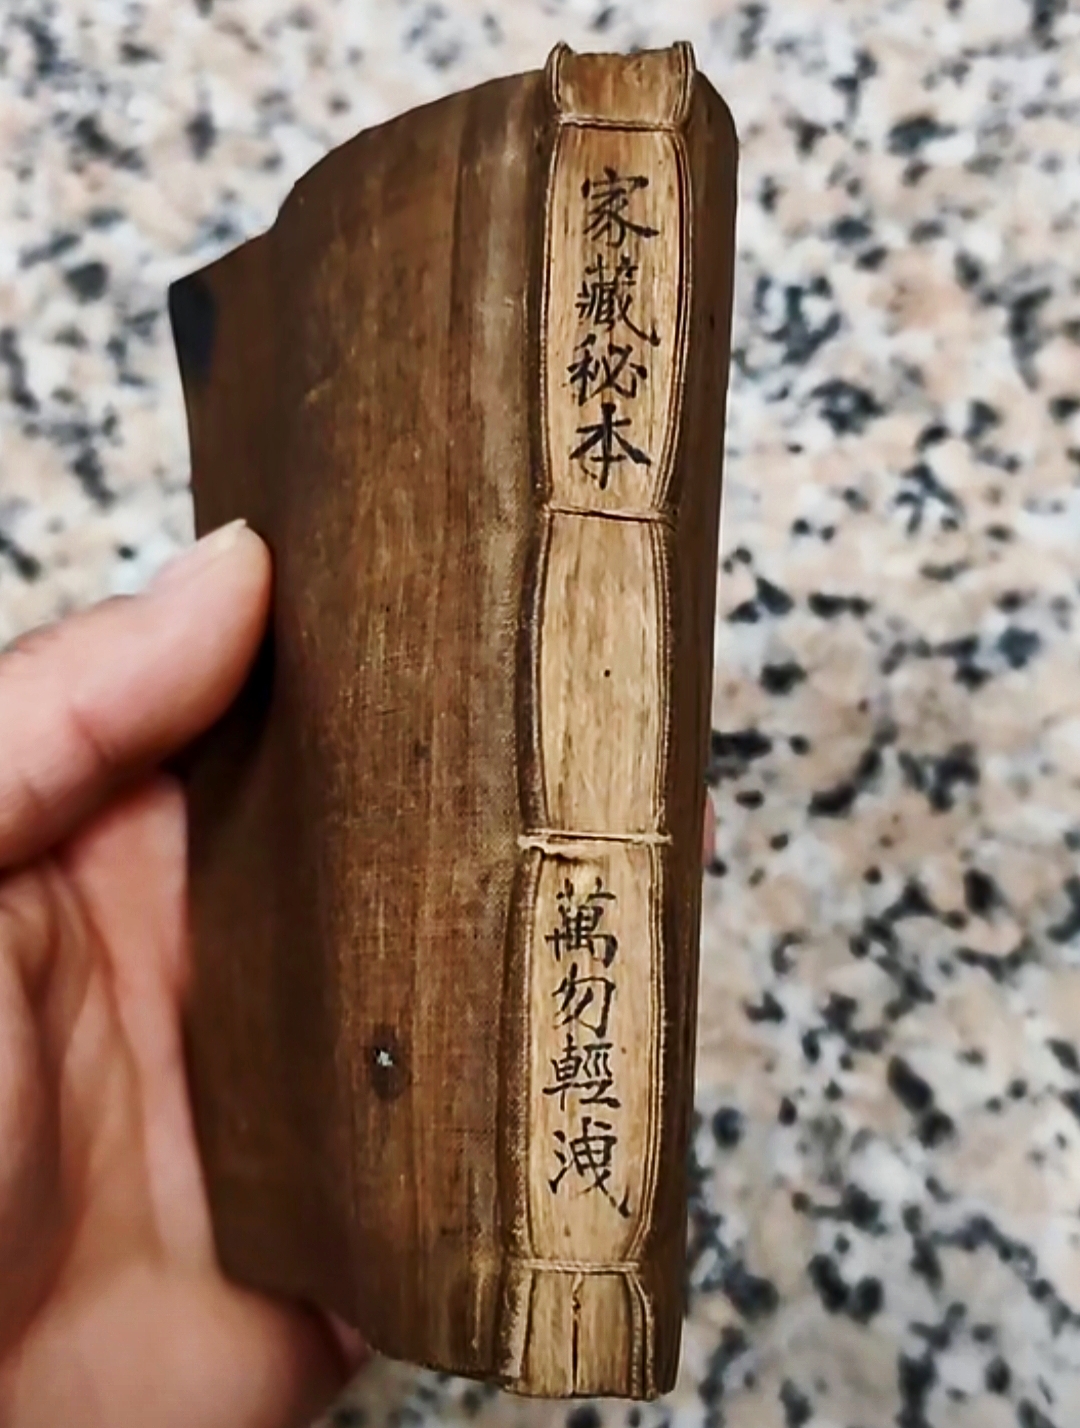 家藏秘本
萬勿輕洩